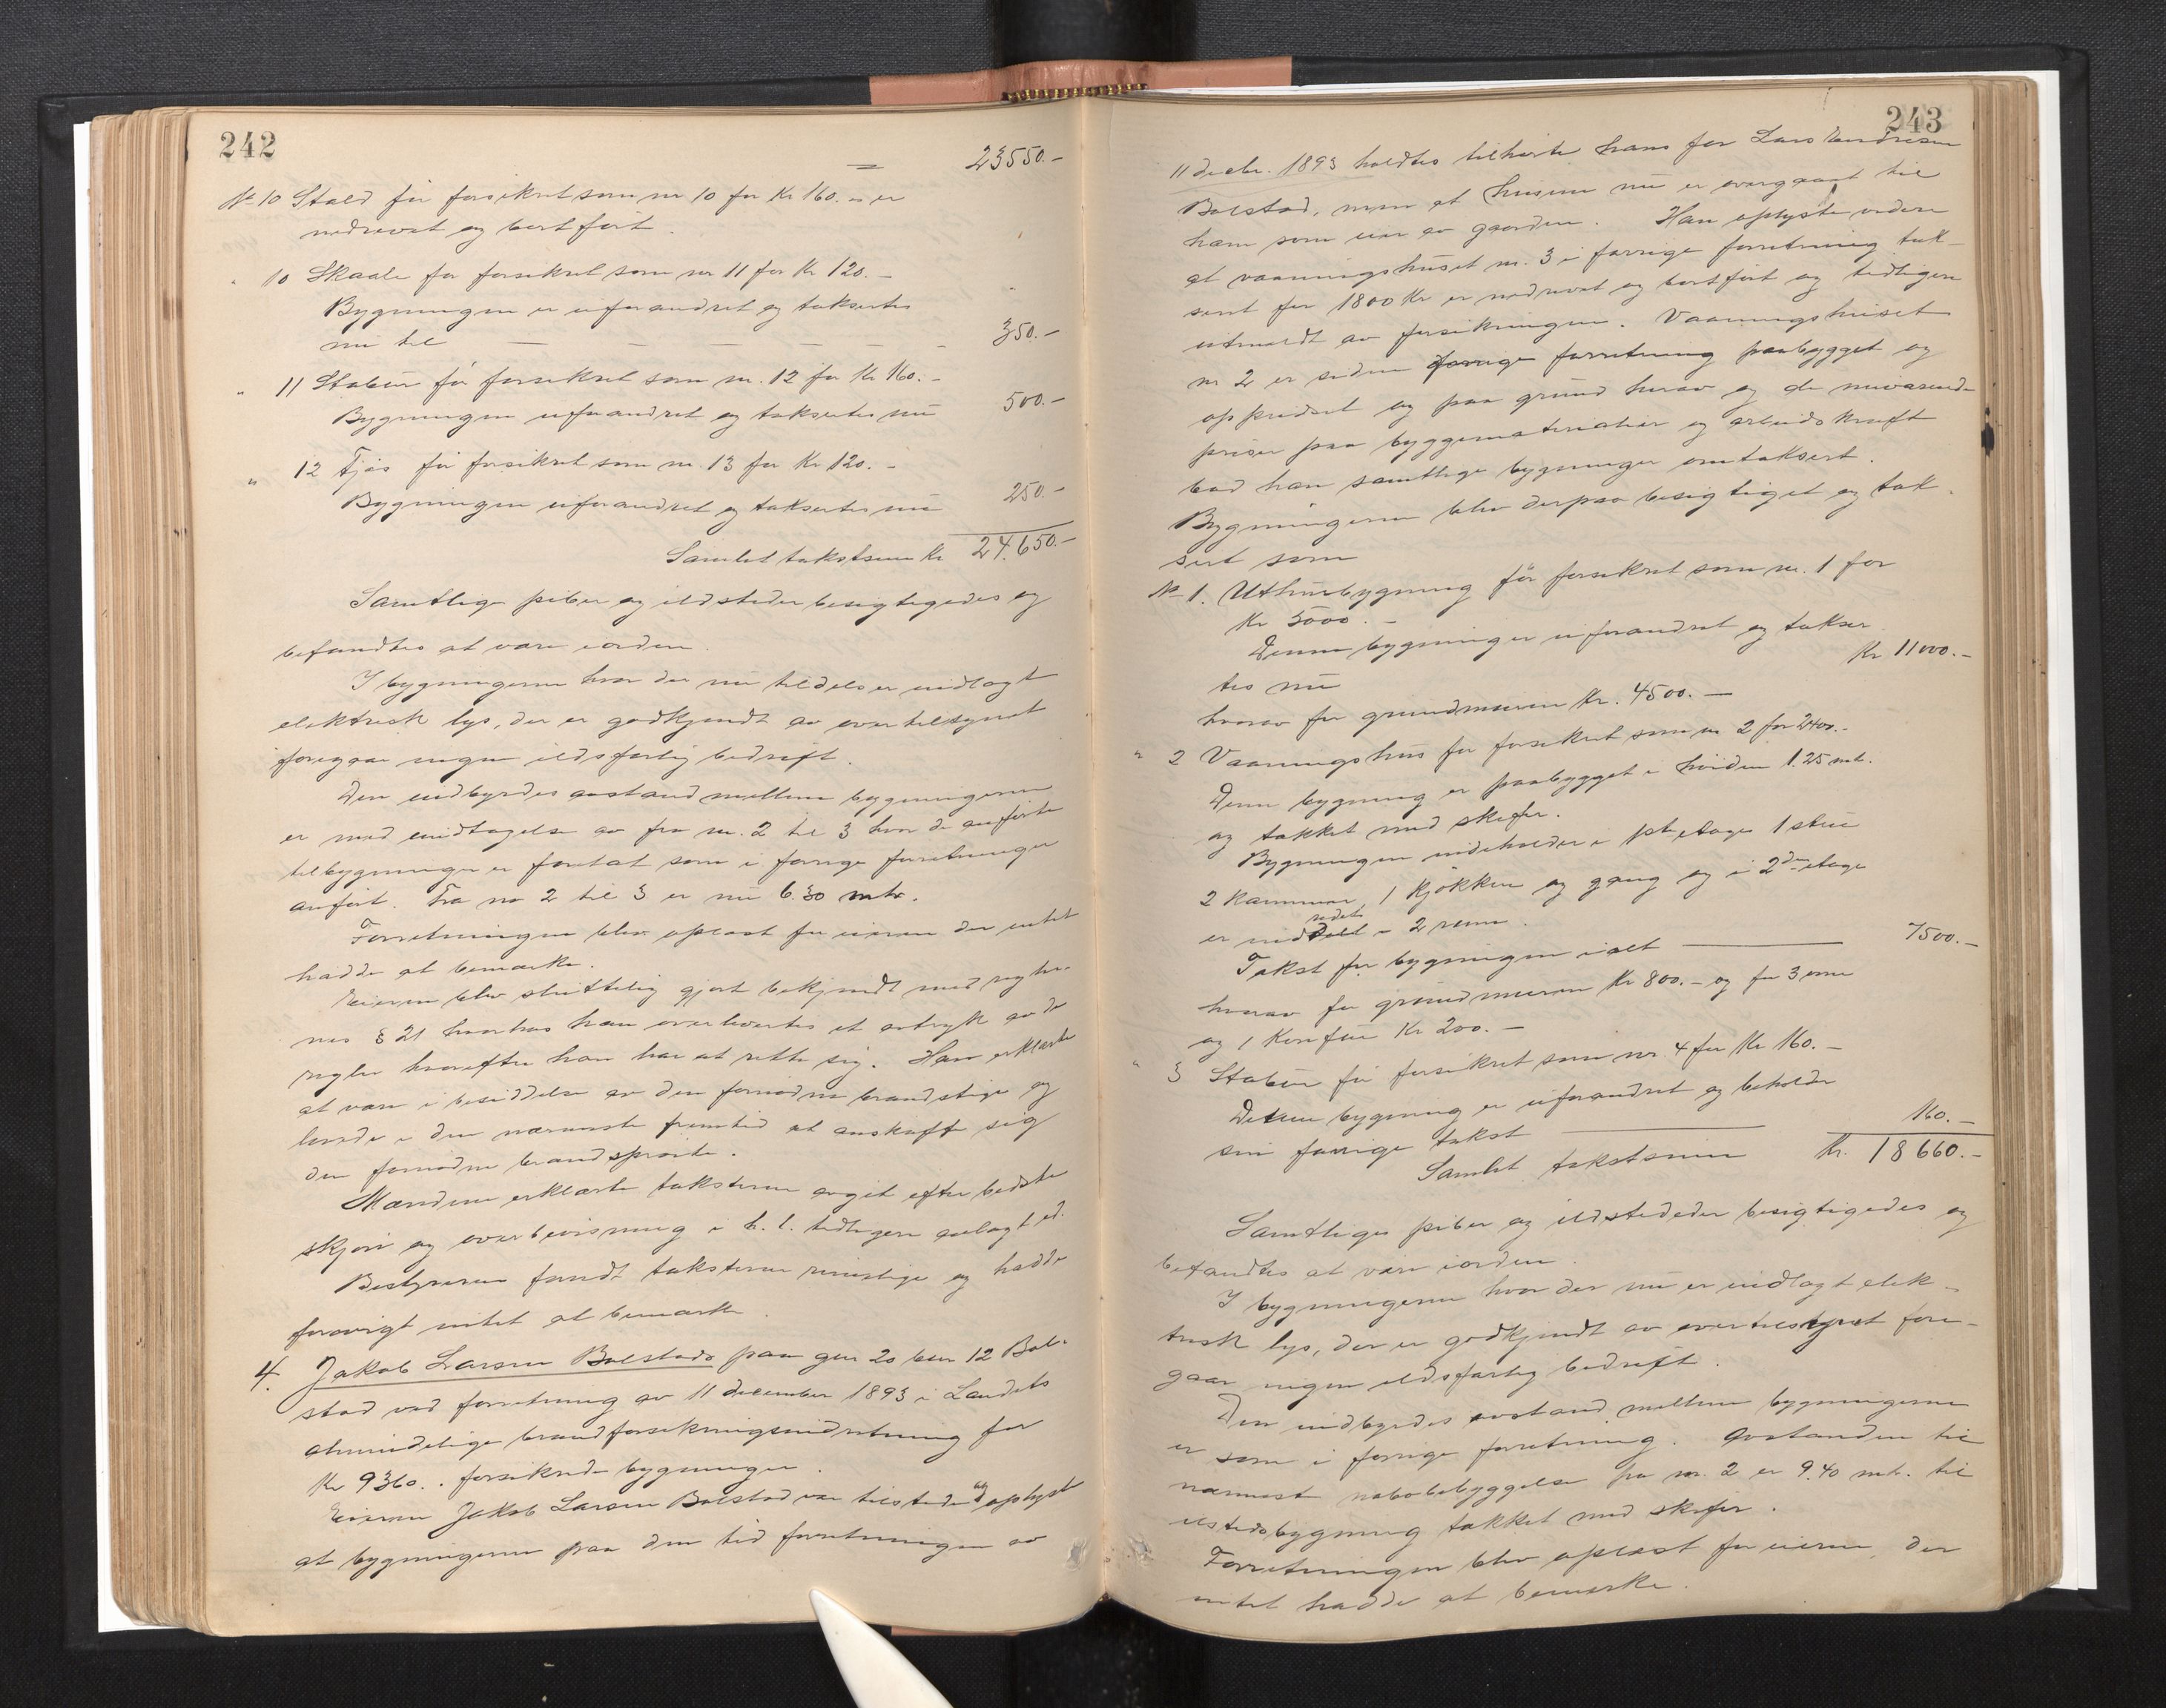 242
= 23550.-
No 10 Stald før forsikret som nr 10 for Kr 160.- er
nedrevet og bortført.
" 10 Skaale før forsikret som nr 11 for Kr 120.-
Bygningen er uforandret og takseres
nu til — — — — — 350.-
" 11 Stabur før forsikret som nr. 12 for Kr 160.-
Bygningen uforandret og takseres nu 500.-
" 12 Fjøs før forsikret som nr. 13 for Kr 120.-
Bygningen uforandret og takseres nu 250.-
Samlet takstsum Kr 24.650.-
Samtlige piber og ildsteder besigtigedes og
befandtes at være iorden.
I bygningerne hvor der nu tildels er indlagt
elektrisk lys, der er godkjendt av overtilsynet
foregaar ingen ildsfarlig bedrift.
Den indbyrdes avstand mellem bygningerne
er med undtagelse av fra nr. 2 til 3 hvor de anførte
tilbygninger er foretat som i forrige forretninger
anført. Fra no 2 til 3 er nu 6.30 mtr.
Forretningen blev oplæst for eieren der intet
hadde at bemærke.
Eieren blev skriftelig gjort bekjendt med regler-
nes § 21 hvorhos han overleveres et avtryk av de
regler hvorefter han har at rette sig. Han erklærte
at være i besiddelse av den fornødne brandstige og
lovede i den nærmeste fremtid at anskaffe sig
den fornødne brandsprøite.
Mændene erklærte taksterne avgit efter bedste
skjøn og overbevisning i h. t. tidligere avlagt ed.
Bestyreren fandt taksterne rimelige og hadde
forøvrigt intet at bemærke.
4. Jakob Larsen Bolstads paa gnr 20 bnr 12 Bol-
stad ved forretning av 11 december 1893 i Landets
almindelige brandforsikringsindretning for
Kr 9360.. forsikrede bygninger.
Eieren Jakob Larsen Bolstad var tilstede og oplyste
at bygningerne paa den tid forretningen av
243
11 decbr. 1893 holdtes tilhørte hans far Lars Endresen
Bolstad, men at husene nu er overgaaet til
ham som eier av gaarden. Han oplyste videre
at vaaningshuset nr. 3 i forrige forretning tak-
sert for 1800 Kr er nedrevet og bortført og tidligere
utmeldt av forsikringen. Vaaningshuset
nr 2 er siden forrige forretning paabygget og
oppudset og paa grund herav og de nuværende
priser paa byggematerialier og arbeidskraft
bad han samtlige bygninger omtaksert.
Bygningerne blev derpaa besigtiget og tak-
sert som
No 1. Uthusbygning før forsikret som nr. 1 for
Kr 5000.-
Denne bygning er uforandret og takser
tes nu Kr 11000.-
hvorav for grundmuren Kr. 4500.—
" 2 Vaaningshus før forsikret som nr 2 for 2400.-
Denne bygning er paabygget i høiden 1.25 mtr.
og tækket med skifer.
Bygningen indeholder i 1ste etage 1 stue
2 kammer, 1 kjøkken og gang og i 2den etage
er indredet 2 rum.
Takst for bygningen ialt — 7500.-
hvorav for grundmuren Kr 800.- og for 3 ovne
og 1 Komfur Kr 200.-
" 3 Stabur før forsikret som nr. 4 for Kr 160.-
Denne bygning er uforandret og beholder
sin forrige takst — 160.-
Samlet takstsum Kr. 18660.-
Samtlige piber og ildstededer besigtigedes og
befandtes at være iorden.
I bygningerne hvor der nu er indlagt elek-
trisk lys, der er godkjendt av overtilsynet fore-
gaar ingen ildsfarlig bedrift.
Den indbyrdes avstand mellem bygningerne
er som i forrige forretning. Avstanden til
nærmeste nabobebyggelse fra nr. 2 er 9.40 mtr. til
ildstedsbygning tækket med skifer.
Forretningen blev oplæst for eieren, der
intet hadde at bemerke.